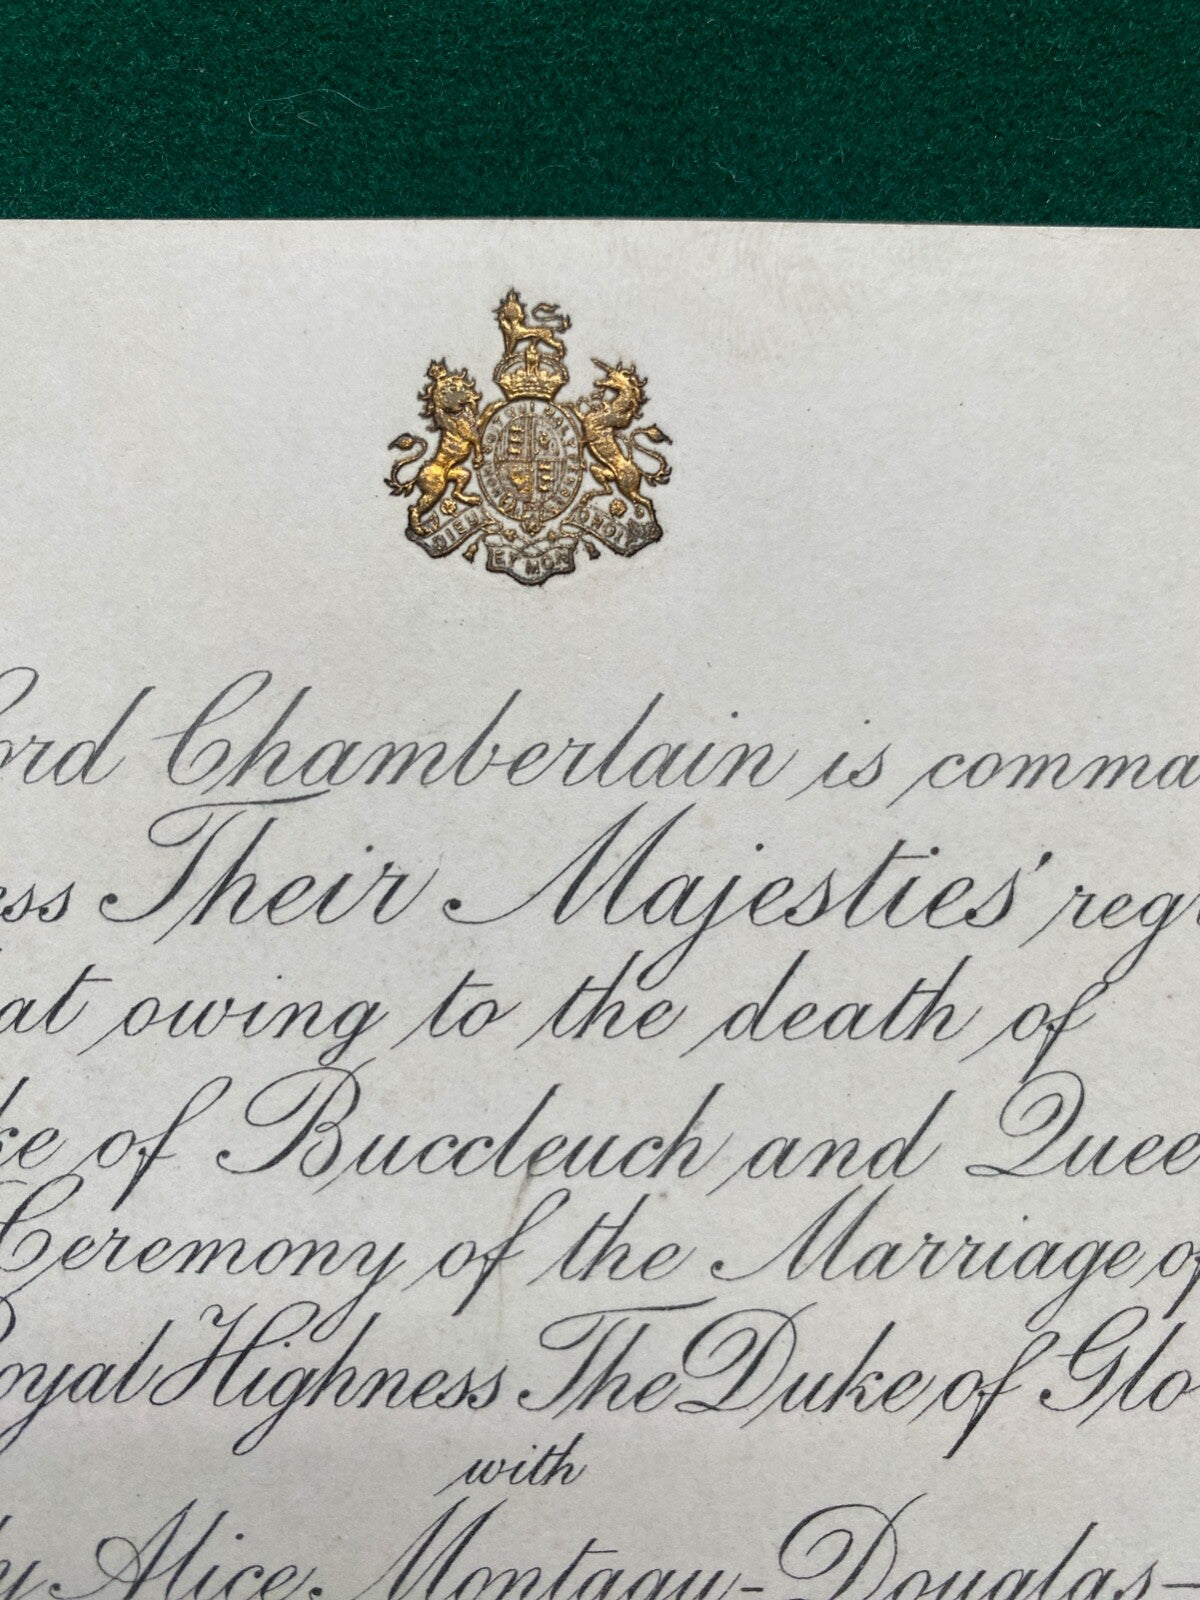 DIEU ET MON DROIT
ord Chamberlain is comma
ess Their Majesties' reg
at owing to the death of
ke of Buccleuch and Quee
Ceremony of the Marriage of
Royal Highness The Duke of Glo
with
y Alice Montagu-Douglas-